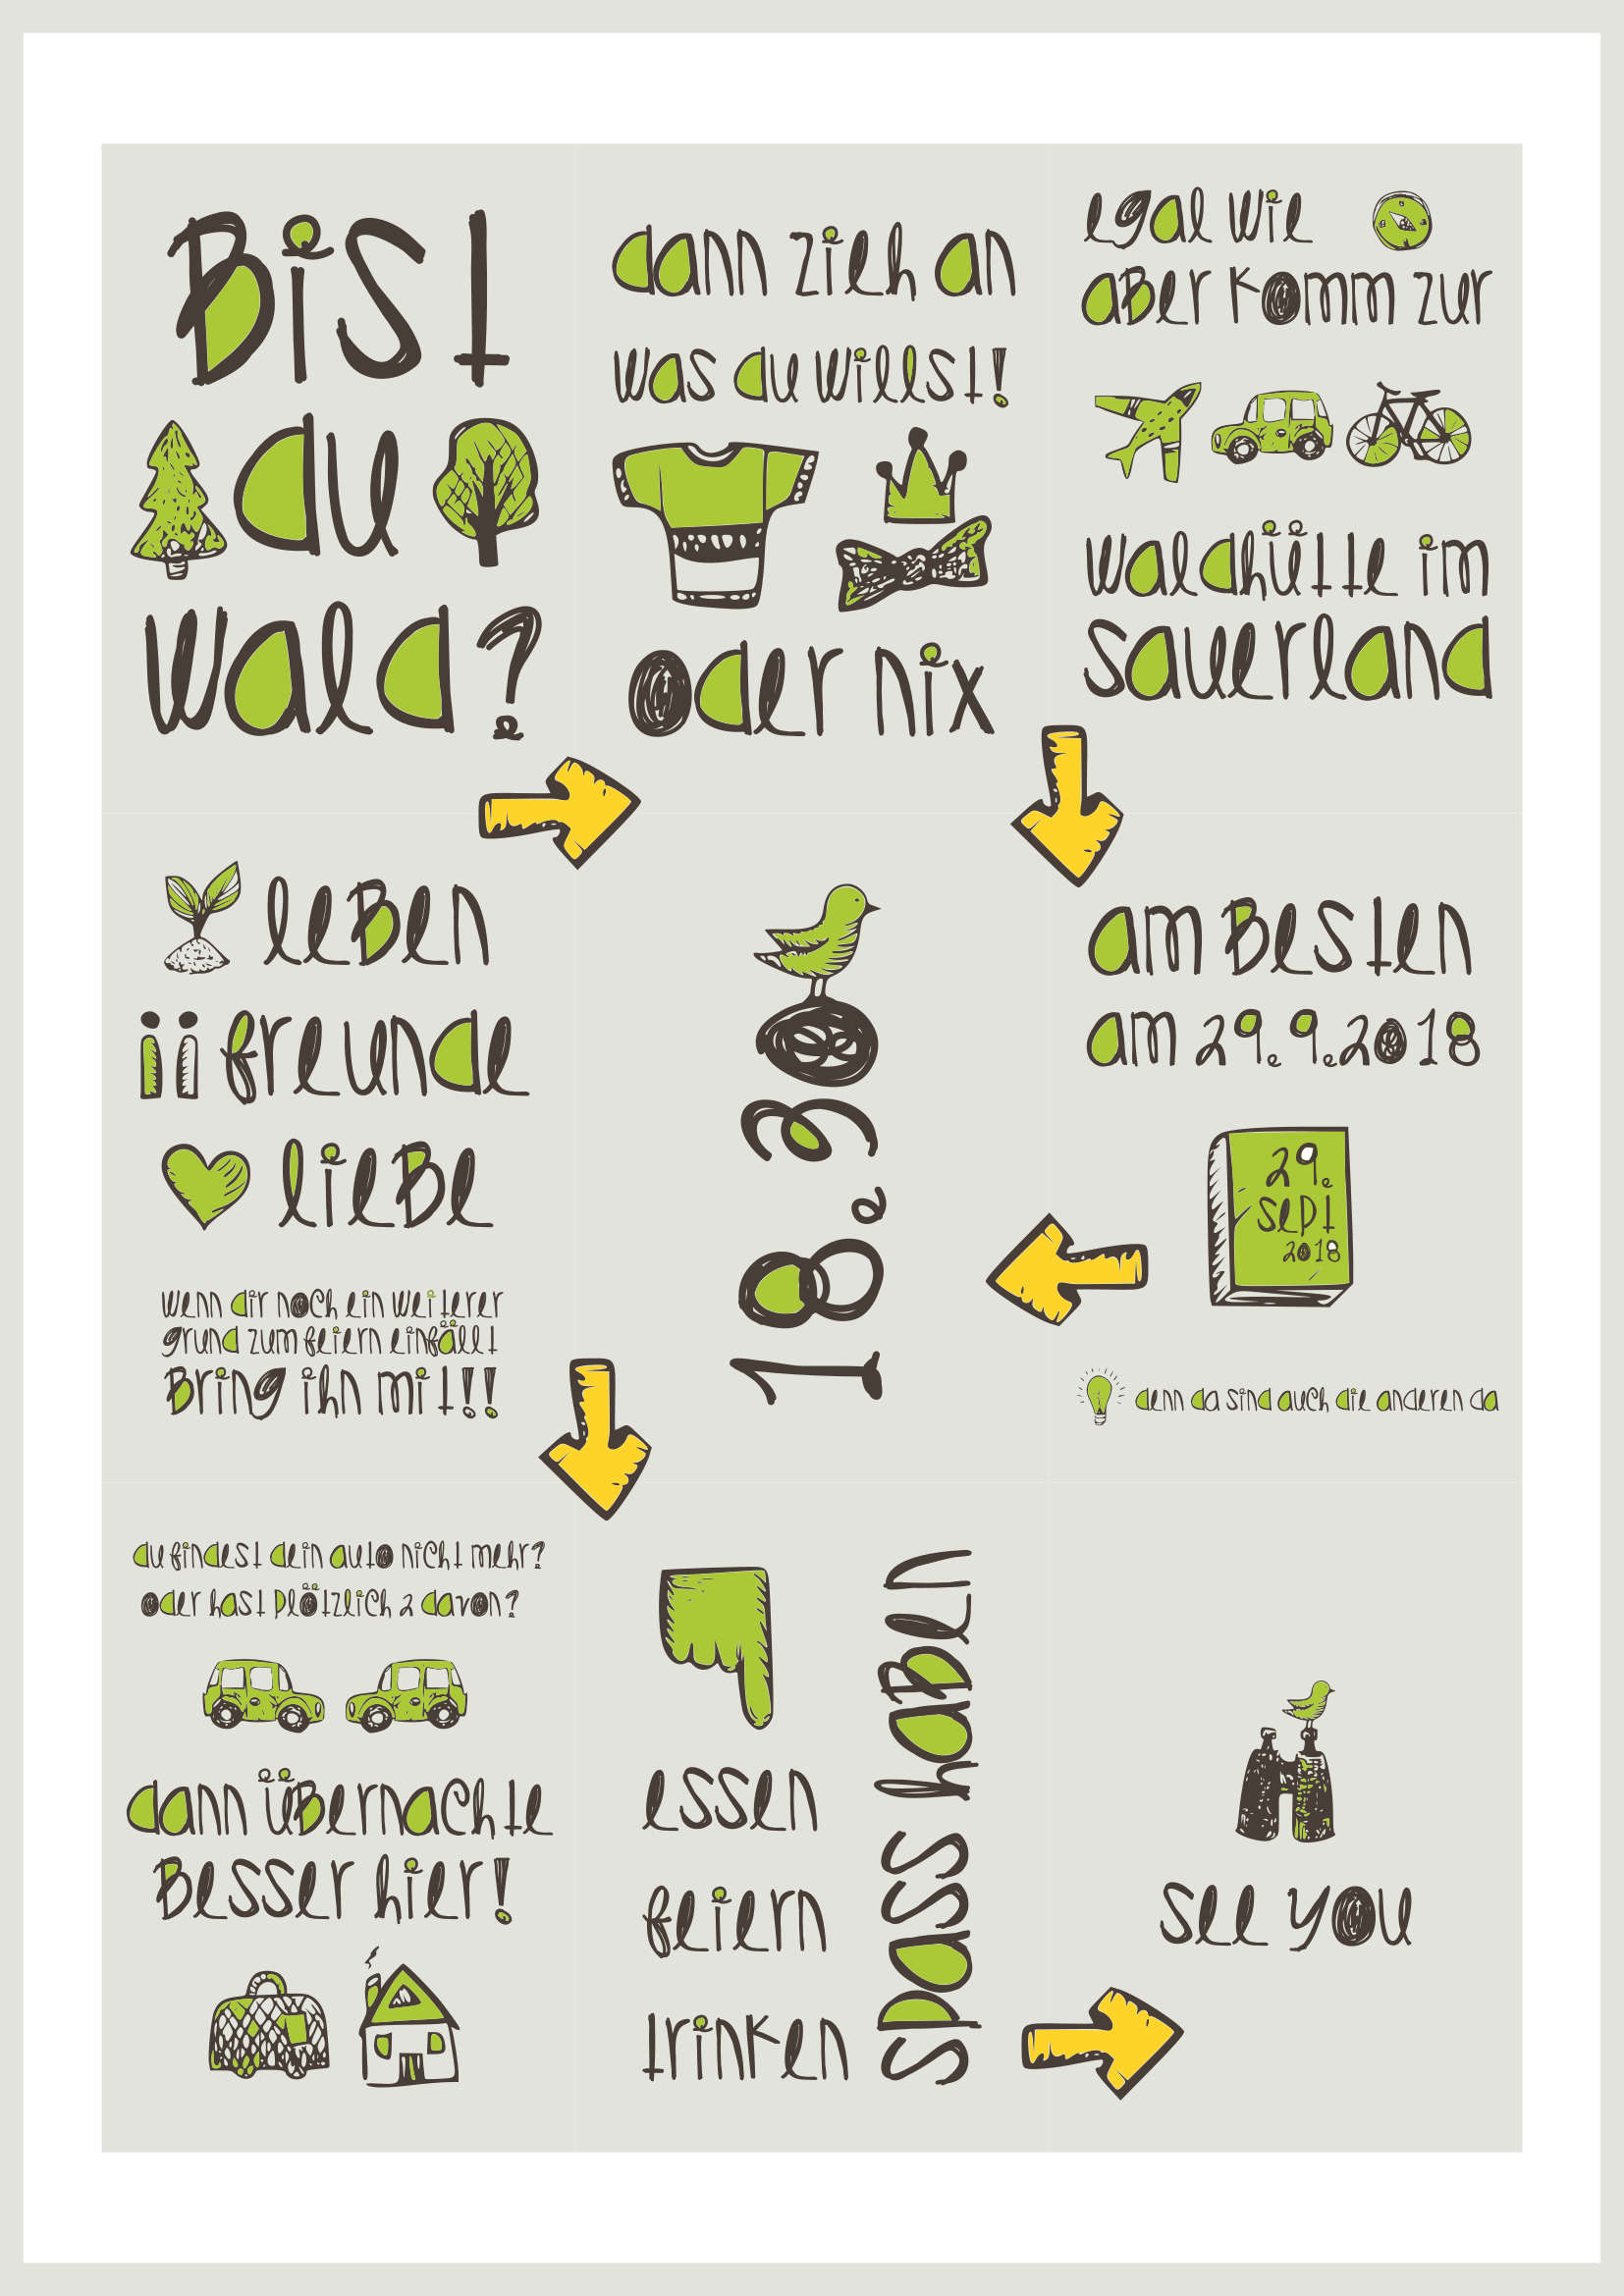 Bist
du
wald?
dann zieh an
was du willst!
oder nix
egal wie
aber komm zur
waldhütte im
sauerland
am besten
am 29.9.2018
29.
sept
2018
denn da sind auch die anderen da
18.30
leben
freunde
liebe
wenn dir noch ein weiterer
grund zum feiern einfällt
Bring ihn mit!!
du findest dein auto nicht mehr?
oder hast plötzlich 2 davon?
dann übernachte
Besser hier!
essen
feiern
trinken
spass haben
see you